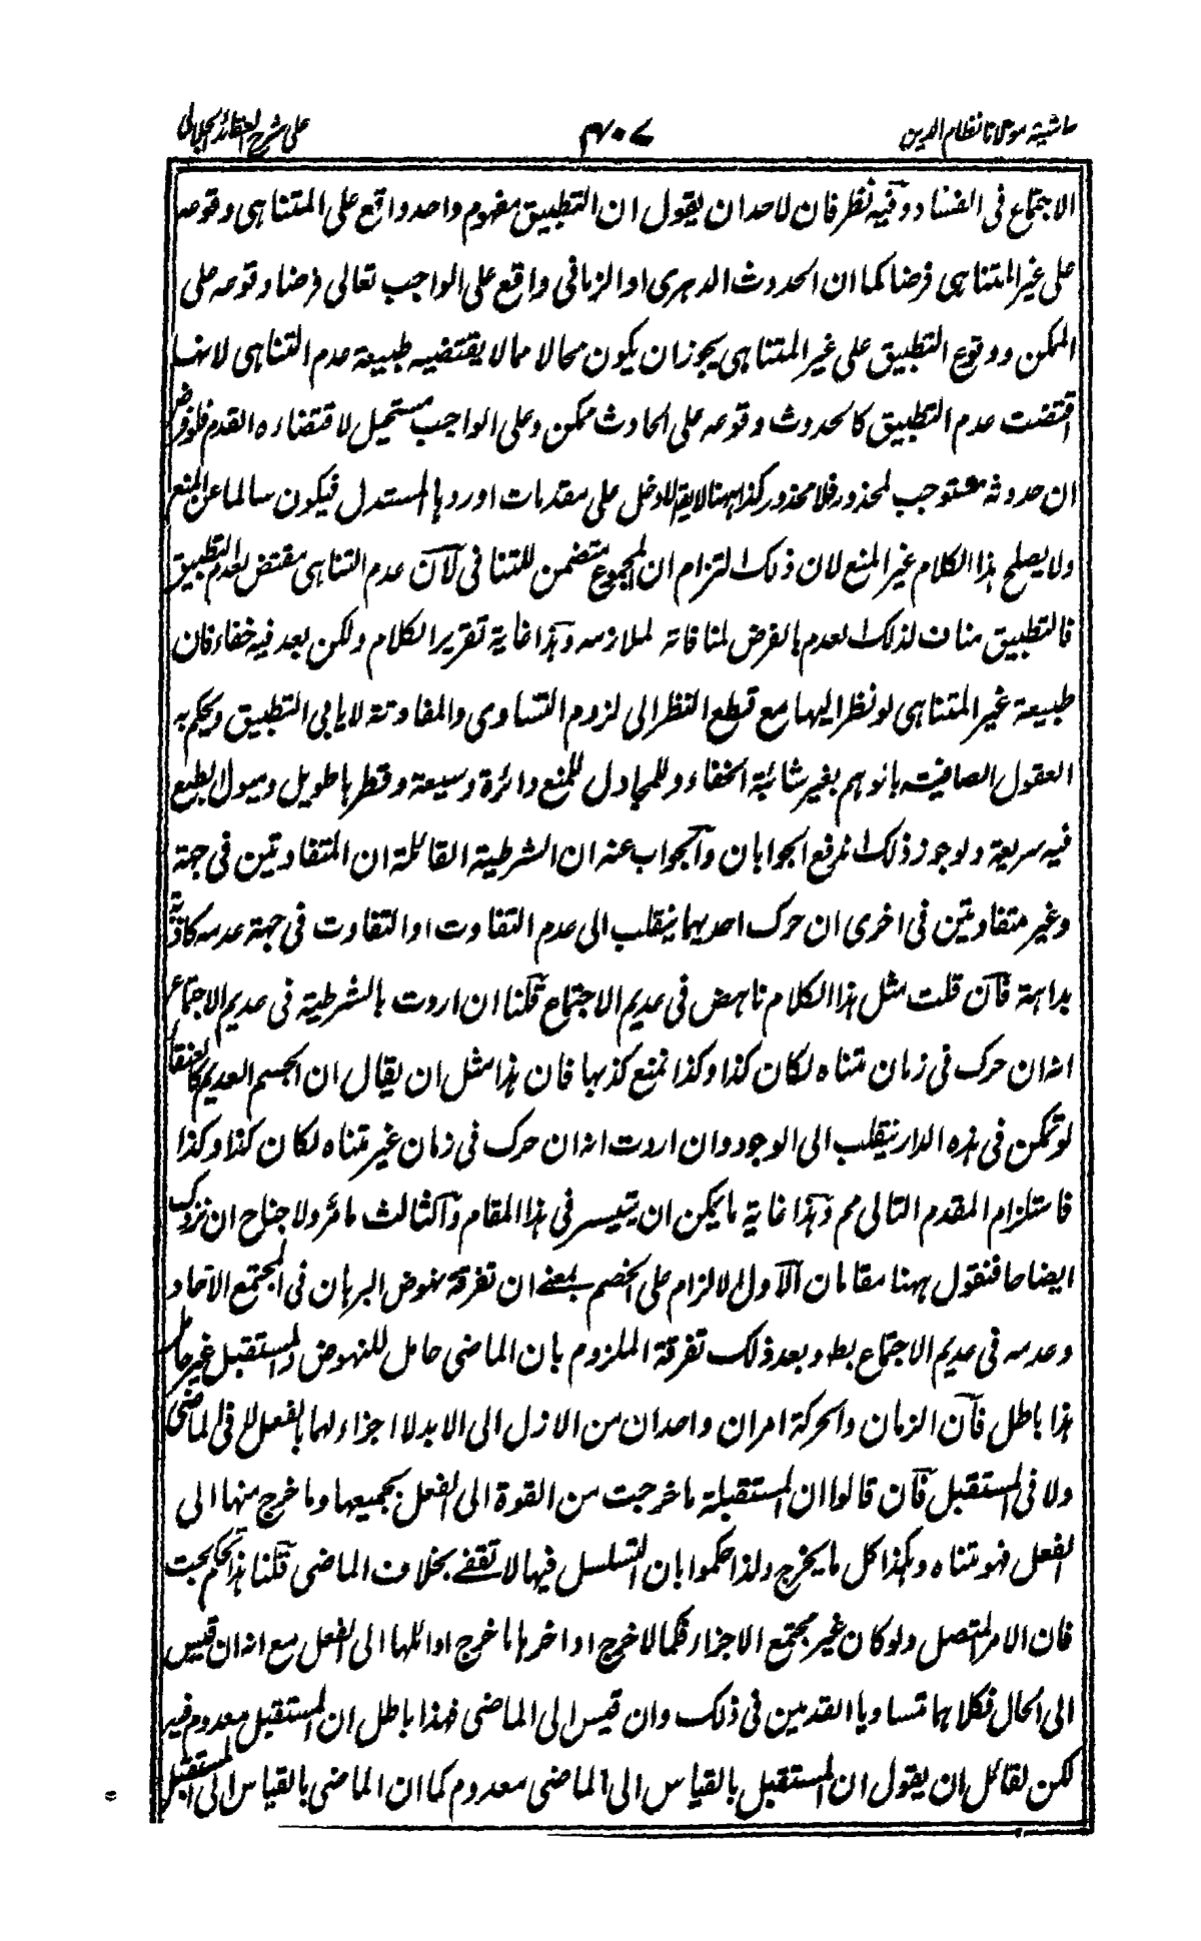 حاشية مولانا نظام الدين ٤٠٧ على شرح العقائد الجلالى
الاجتماع فى الفساد وفيه نظر فان لاحد ان يقول ان التطبيق مفهوم واحد واقع على المتناهى وقوعه
على غير المتناهى فرضا كما ان الحدوث الدهرى او الزمانى واقع على الواجب تعالى فرضا وقوعه على
الممكن ووقوع التطبيق على غير المتناهى يجوز ان يكون محالا مما لا يقتضيه طبيعة عدم التناهى لانها
اقتضت عدم التطبيق كالحدوث وقوعه على الحادث ممكن وعلى الواجب مستحيل لاقتضاءه القدم فلو فرض
ان حدوثه مستوجب لمحذور فلا محذور كذا ههنا لا يقم للدخل على مقدمات اوردها المستدل فيكون سالما عن المنع
ولا يصلح هذا الكلام غير المنع لان ذلك التزام ان المجموع متضمن للتنافى لان عدم التناهى مقتض لعدم التطبيق
فالتطبيق مناف لذلك لعدم بالفرض لمنافاته لملازمه وهذا غاية تقرير الكلام ولكن بعد فيه خفاء فان
طبيعة غير المتناهى لو نظر اليها مع قطع النظر الى لزوم التساوى والمفاوتة لا يابى التطبيق ويحكم به
العقول الصافية بانوهم بغير شائبة الخفاء وللمجادل للمنع دائرة وسيعة وقطرها طويل وميول الطبع
فيه سريعة ولو جوز ذلك لمرفع الجوابان والجواب عنه ان الشرطية القائلة ان المتفاوتين فى جهة
وغير متفاوتين فى اخرى ان حرك احديهما ينقلب الى عدم التفاوت او التفاوت فى جهة عدمه كاذبة
بداهة فان قلت مثل هذا الكلام ناهض فى عديم الاجتماع قلنا ان اردت بالشرطية فى عديم الاجتماع
انه ان حرك فى زمان متناه لكان كذا وكذا نمنع كذبها فان هذا مثل ان يقال ان الجسم العديم كالعنقا
لو تمكن فى هذه الدار ينقلب الى الوجود وان اردت انه ان حرك فى زمان غير متناه لكان كذا وكذا
فاستلزام المقدم التالى مم وهذا غاية ما يمكن ان يتيسر فى هذا المقام والثالث ما مر ولا جناح ان نزيدك
ايضاحا فنقول ههنا مقامان الاول الالزام على الخصم بمعنے ان تفرقة نهوض البرهان فى المجتمع الآحاد
وعدمه فى عديم الاجتماع بط وبعد ذلك تفرقة الملزوم بان الماضى حامل للنهوض والمستقبل غير حامل
هذا باطل فان الزمان والحركة امران واحدان من الازل الى الابد لا اجزاء لها بالفعل لا فى الماضى
ولا فى المستقبل فان قالوا ان المستقبلة ما خرجت من القوة الى الفعل بجميعها وما خرج منها الى
الفعل فهو متناه وهكذا كل ما يخرج ولذا حكموا بان التسلسل فيها لا تقفے بخلاف الماضى قلنا هذا تحكم بحت
فان الامر المتصل ولو كان غير مجتمع الاجزاء فكما لا خرج اواخرها ما خرج اوائلها الى الفعل مع انه ان قيس
الى الحال فكلاهما متساويا القدمين فى ذلك وان قيس الى الماضى فهذا باطل ان المستقبل معدوم فيه
لكن لقائل ان يقول ان المستقبل بالقياس الى الماضى معدوم كما ان الماضى بالقياس الى المستقبل